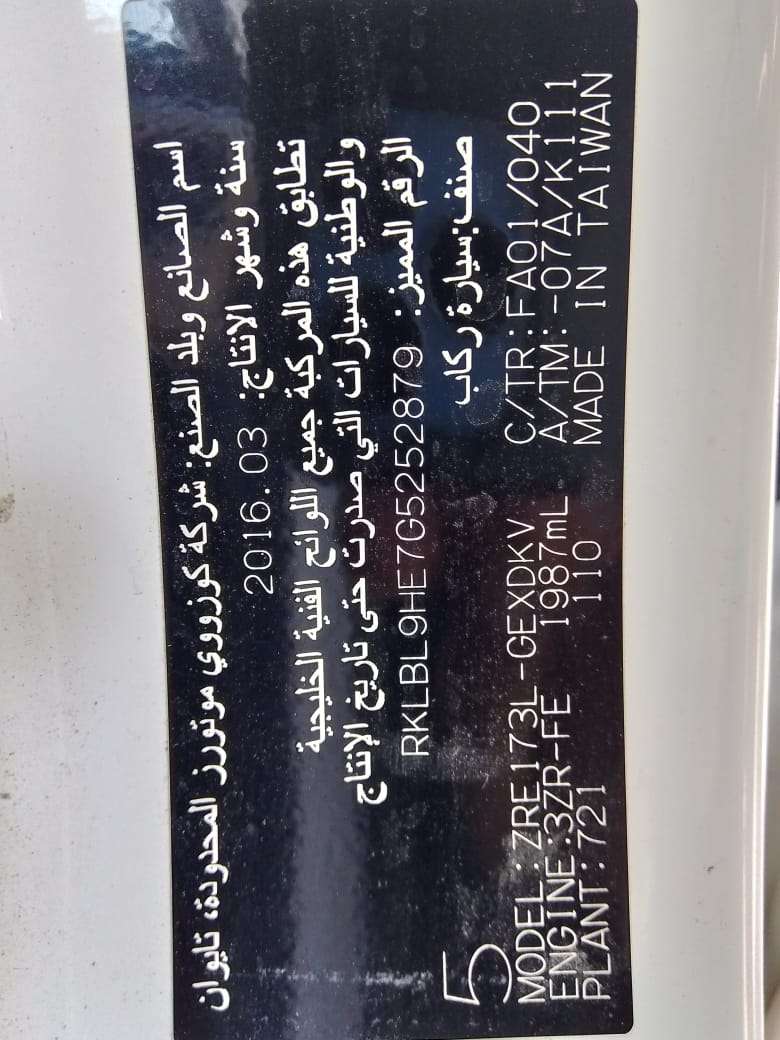 اسم الصانع وبلد الصنع: شركة كوزووي موتورز المحدودة، تايوان
سنة وشهر الانتاج: 2016.03
تطابق هذه المركبة جميع اللوائح الفنية الخليجية
والوطنية للسيارات التي صدرت حتى تاريخ الإنتاج
الرقم المميز: RKLBL9HE7G5252879
صنف:سيارة ركاب
5
MODEL:ZRE173L-GEXDKV C/TR:FA01/040
ENGINE:3ZR-FE 1987mL A/TM:-07A/K111
PLANT:721 110 MADE IN TAIWAN